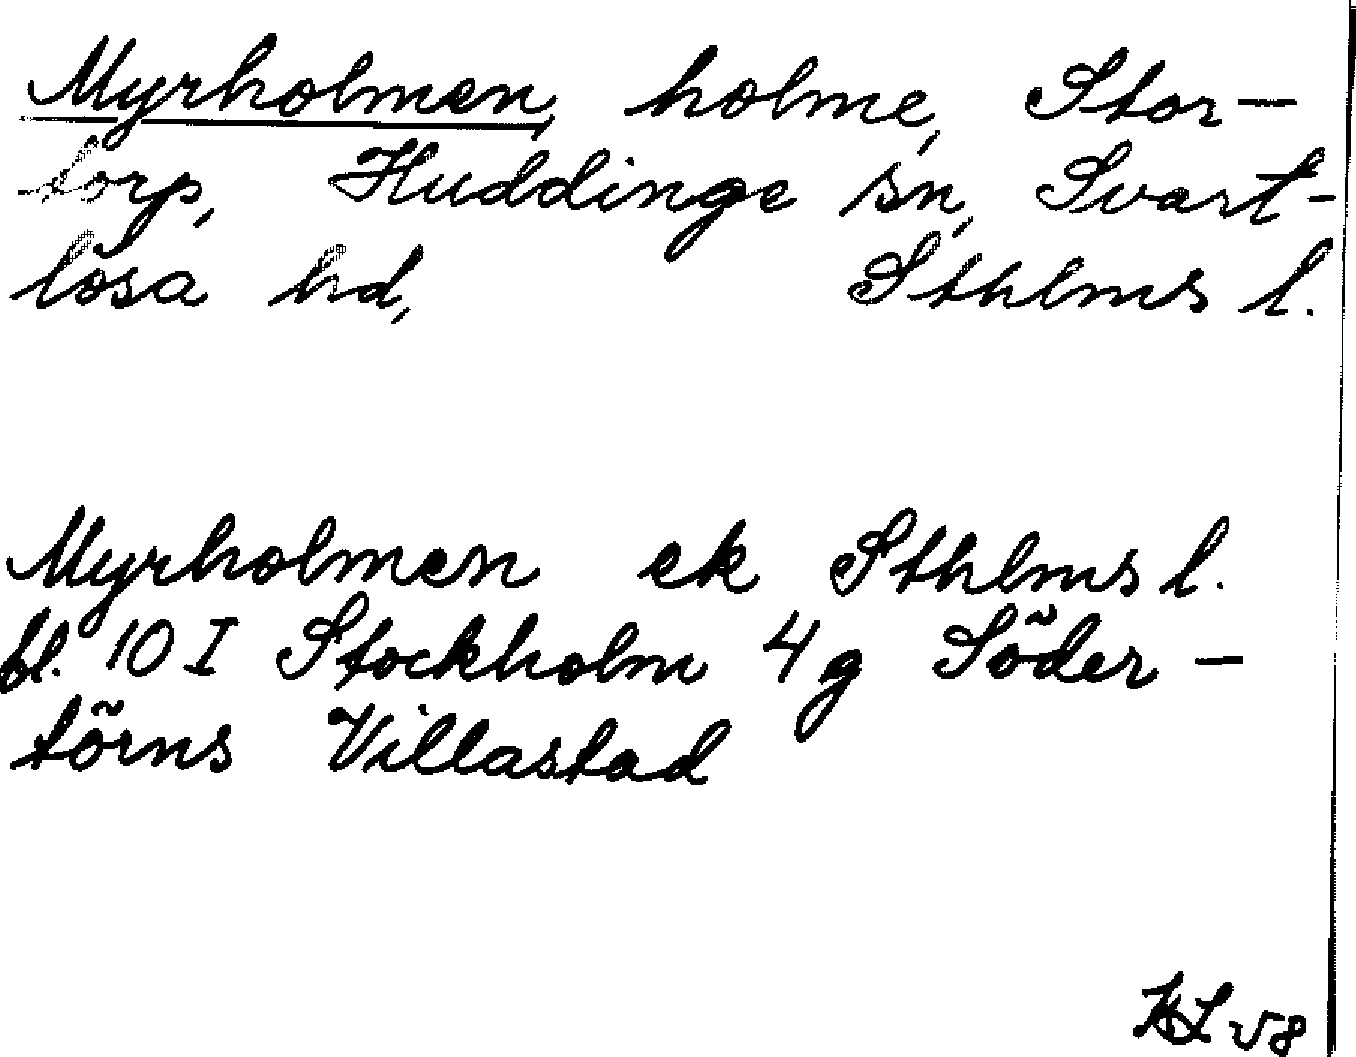 Myrholmen, holme, Stor-
torp, Huddinge sn, Svart-
lösa hd, Sthlms l.
Myrholmen ek Sthlms l.
bl. 10 I Stockholm 4 g Söder-
törns Villastad
58